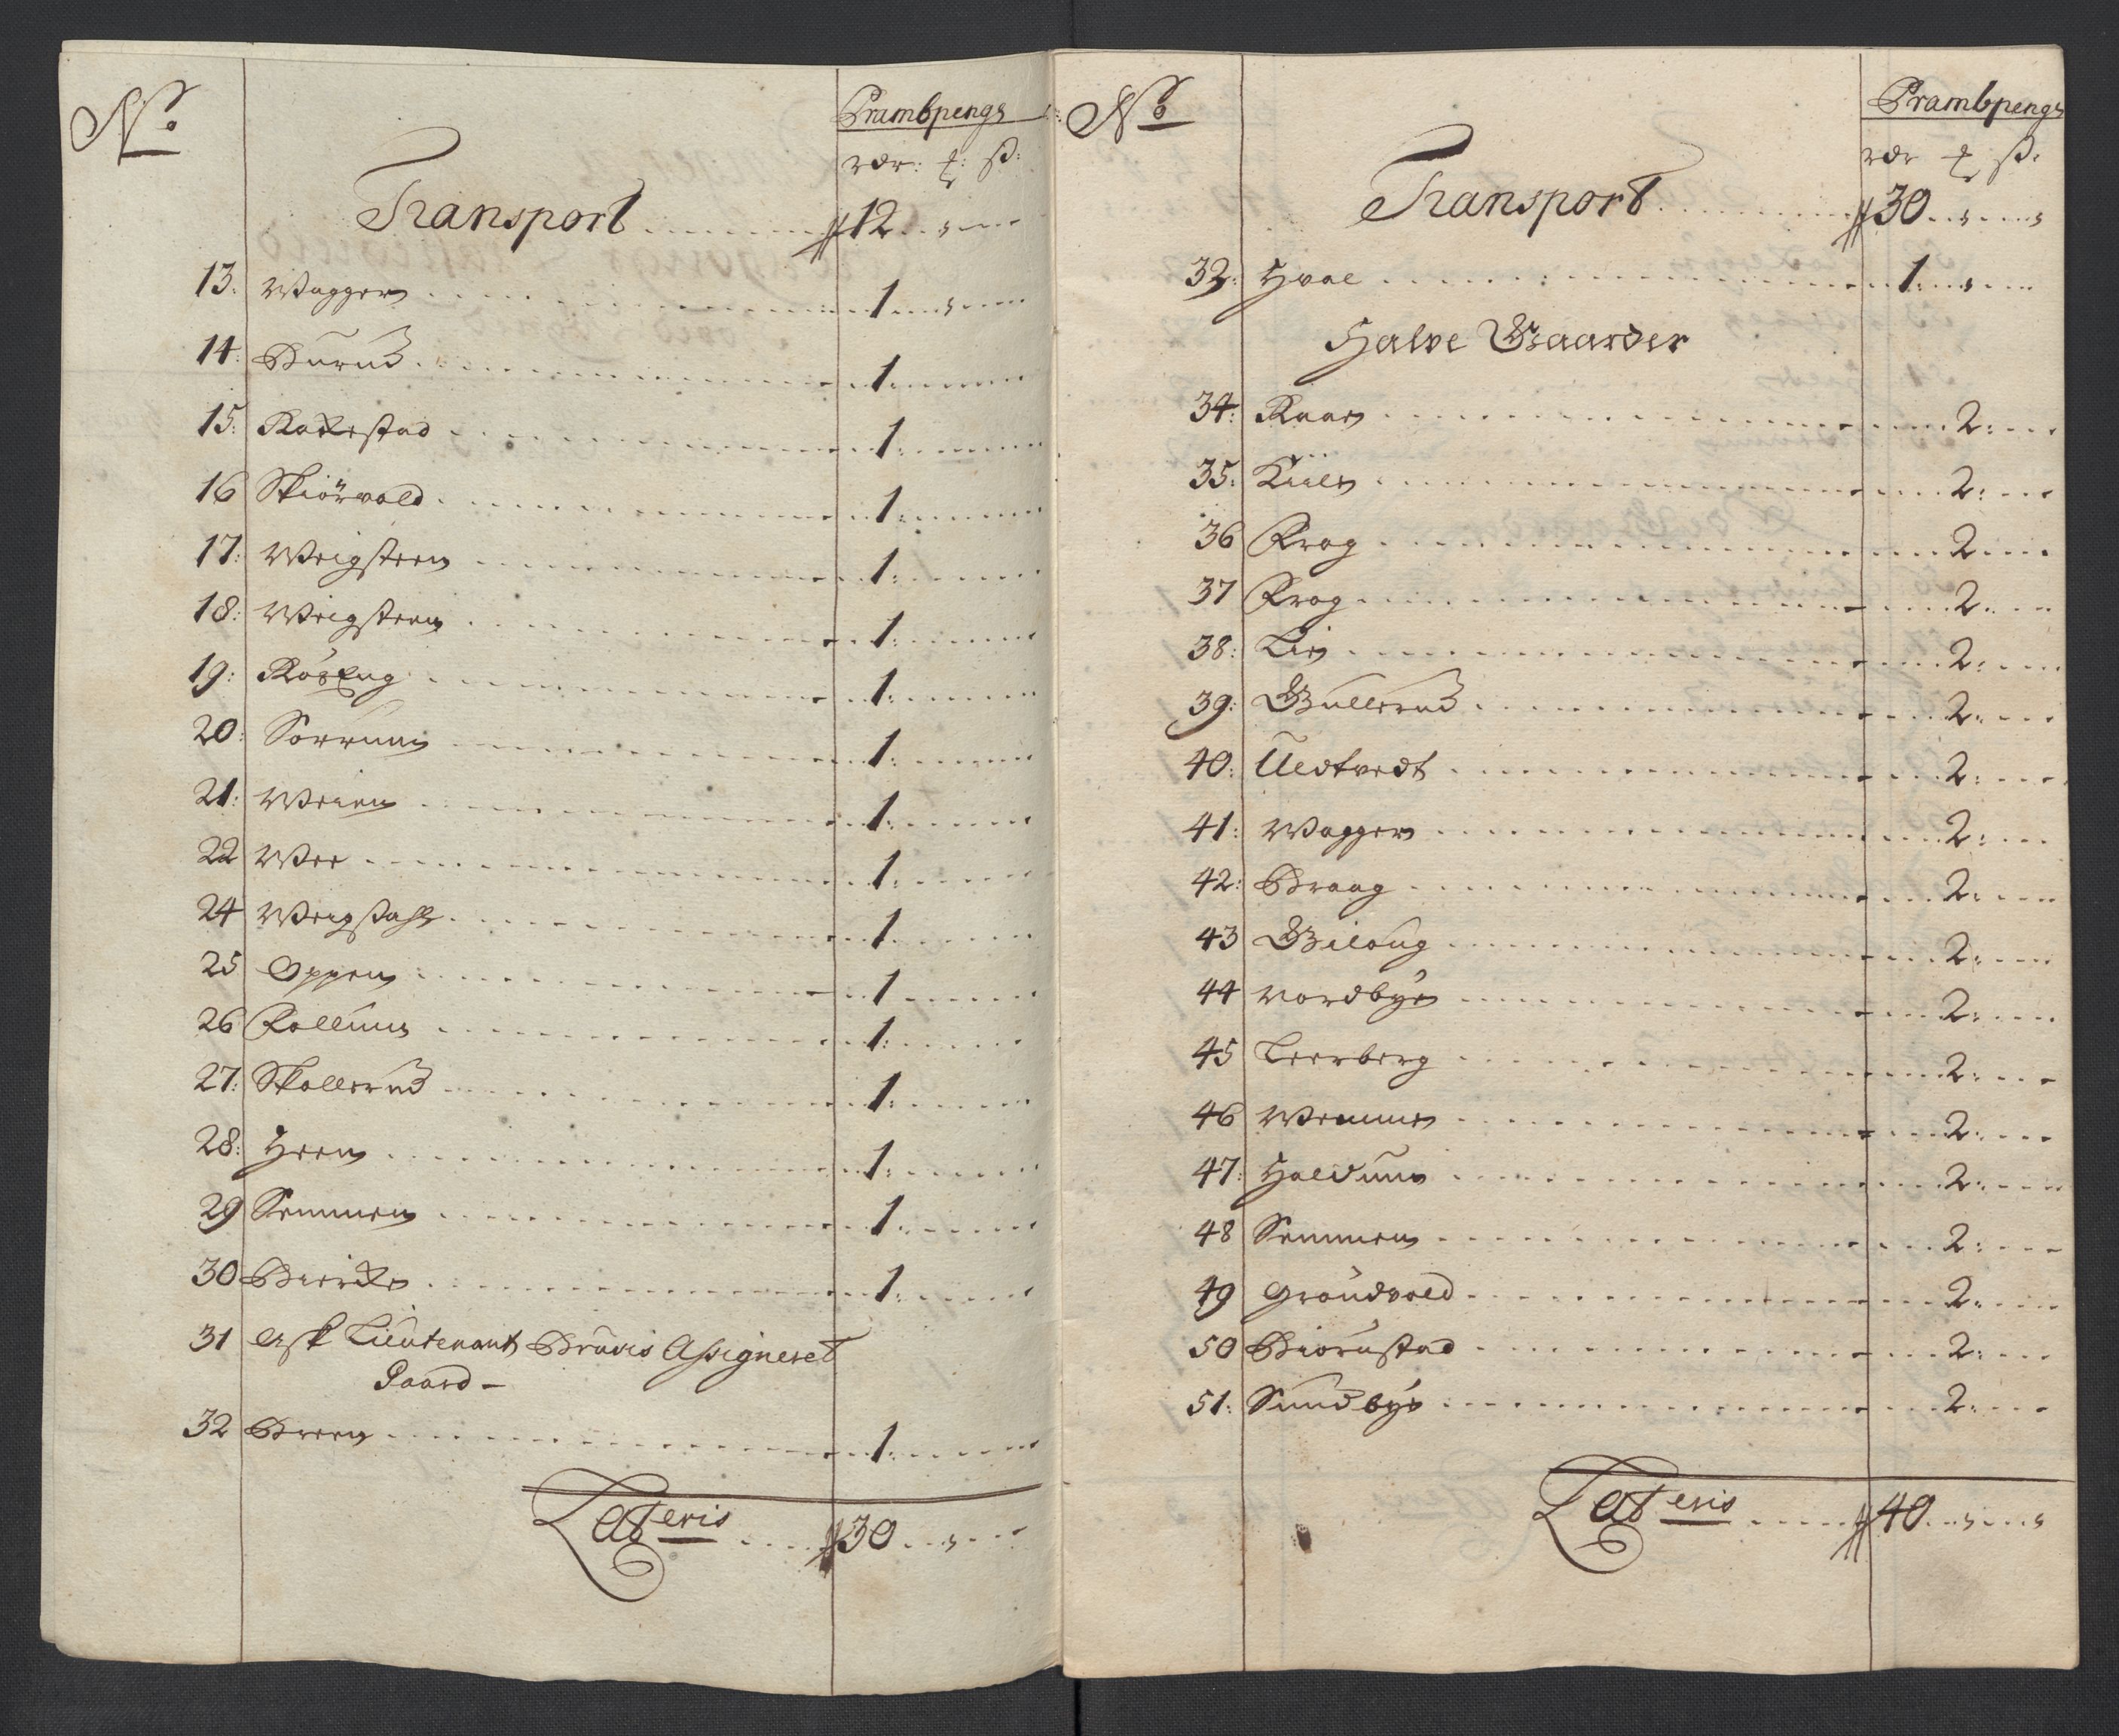 No
Prambpenge
rdr: ℔: ß:
Transport 12
13: Wagger 1
14: Burud 1
15: Rakestad 1
16 Skiörvold 1
17: Weigsteen 1
18: Weigsteen 1
19: Röseng 1
20: Sörrum 1
21: Weien 1
22 Wee 1
24 Weigstahl 1
25 Oppen 1
26 Follum 1
27: Skollerud 1
28: Heen 1
29 Semmen 1
30 Bierke 1
31 Ask Lieutenant Bruuis Assigneret
Gaard
32 Breen 1
Lateris 30
No
Prambpenge
rdr ℔ ß:
Transport 30
33: Hval 1
Halve Gaarder
34: Raae 2
35: Kiile 2
36 Frog 2
37 Frog 2
38: Lie 2
39: Gullerud 2
40: Ueltvedt 2
41: Wagger 2
42: Braag 2
43 Gilaug 2
44 Nordbye 2
45 Leerberg 2
46 Wemme 2
47: Haldum 2
48 Semmen 2
49 Gröndvold 2
50 Biörnstad 2
51: Sundbye 2
Lateris 40